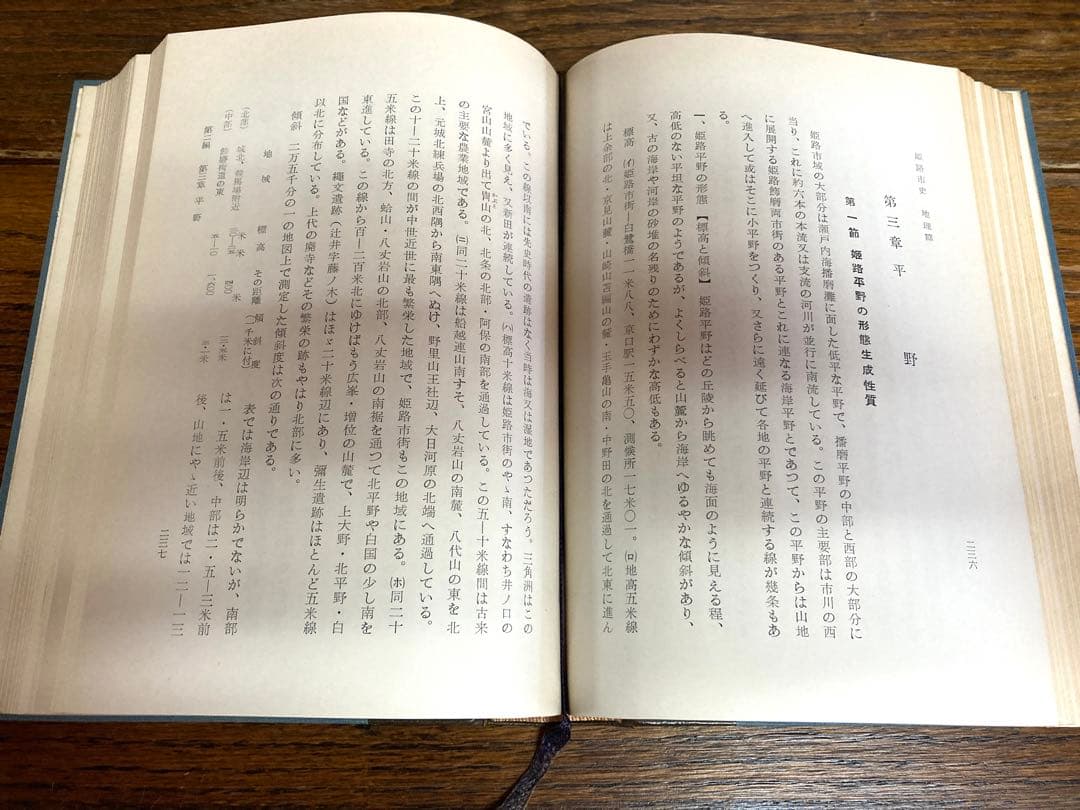 姫路市史 地理篇
二三六
第三章 平野
第一節 姫路平野の形態生成性質
姫路市域の大部分は瀬戸内海播磨灘に面した低平な平野で、播磨平野の中部と西部の大部分に
当り、これに約六本の本流又は支流の河川が並行に南流している。この平野の主要部は市川の西
に展開する姫路飾磨両市街のある平野とこれに連なる海岸平野とであつて、この平野からは山地
へ進入して或はそこに小平野をつくり、又さらに遠く延びて各地の平野と連続する線が幾条もあ
る。
一、姫路平野の形態【標高と傾斜】姫路平野はどの丘陵から眺めても海面のように見える程、
高低のない平坦な平野のようであるが、よくしらべると山麓から海岸へゆるやかな傾斜があり、
又、古の海岸や河岸の砂堆の名残りのためにわずかな高低もある。
標高 ㈠姫路市街―白鷺橋一一米八八、京口駅一五米五〇、測候所一七米〇一。㈡地高五米線
は上余部の北・京見山麓・山崎山苫編山の麓・王手亀山の南・中野田の北を通過して北東に進ん
でいる。この線以南には先史時代の遺跡はなく当時は海又は湿地であつただろう。三角洲はこの
地域に多く見え、又新田が連続している。㈧標高十米線は姫路市街のやゝ南、すなわち井ノ口の
宮山山麓より出て冑山の北、北条の北部・阿保の南部を通過している。この五―十米線間は古来
の主要な農業地域である。㈡同二十米線は船越連山南すそ、八丈岩山の南麓、八代山の東を北
上、元城北練兵場の北西隅から南東隅へぬけ、野里山王社辺、大日河原の北端へ通過している。
この十―二十米線の間が中世近世に最も繁栄した地域で、姫路市街もこの地域にある。㈭同二十
五米線は田寺の北方、蛤山・八丈岩山の北部、八丈岩山の南裾を通つて北平野や白国の少し南を
東進している。この線から百―二百米北にゆけばもう広峯・増位の山麓で、上大野・北平野・白
国などがある。縄文遺跡(辻井字藤ノ木)はほゞ二十米線辺にあり、彌生遺跡はほとんど五米線
以北に分布している。上代の廃寺などその繁栄の跡もやはり北部に多い。
傾斜 二万五千分の一の地図上で測定した傾斜度は次の通りである。
地域 標高 その距離 傾斜度(一千米に付)
(北部) 城北、競馬場附近
(中部) 飾磨街道の東
表では海岸辺は明らかでないが、南部
は一・五米前後、中部は二・五―三米前
後、山地にやゝ近い地域では一二―一三
第二編 第三章 平野
二三七